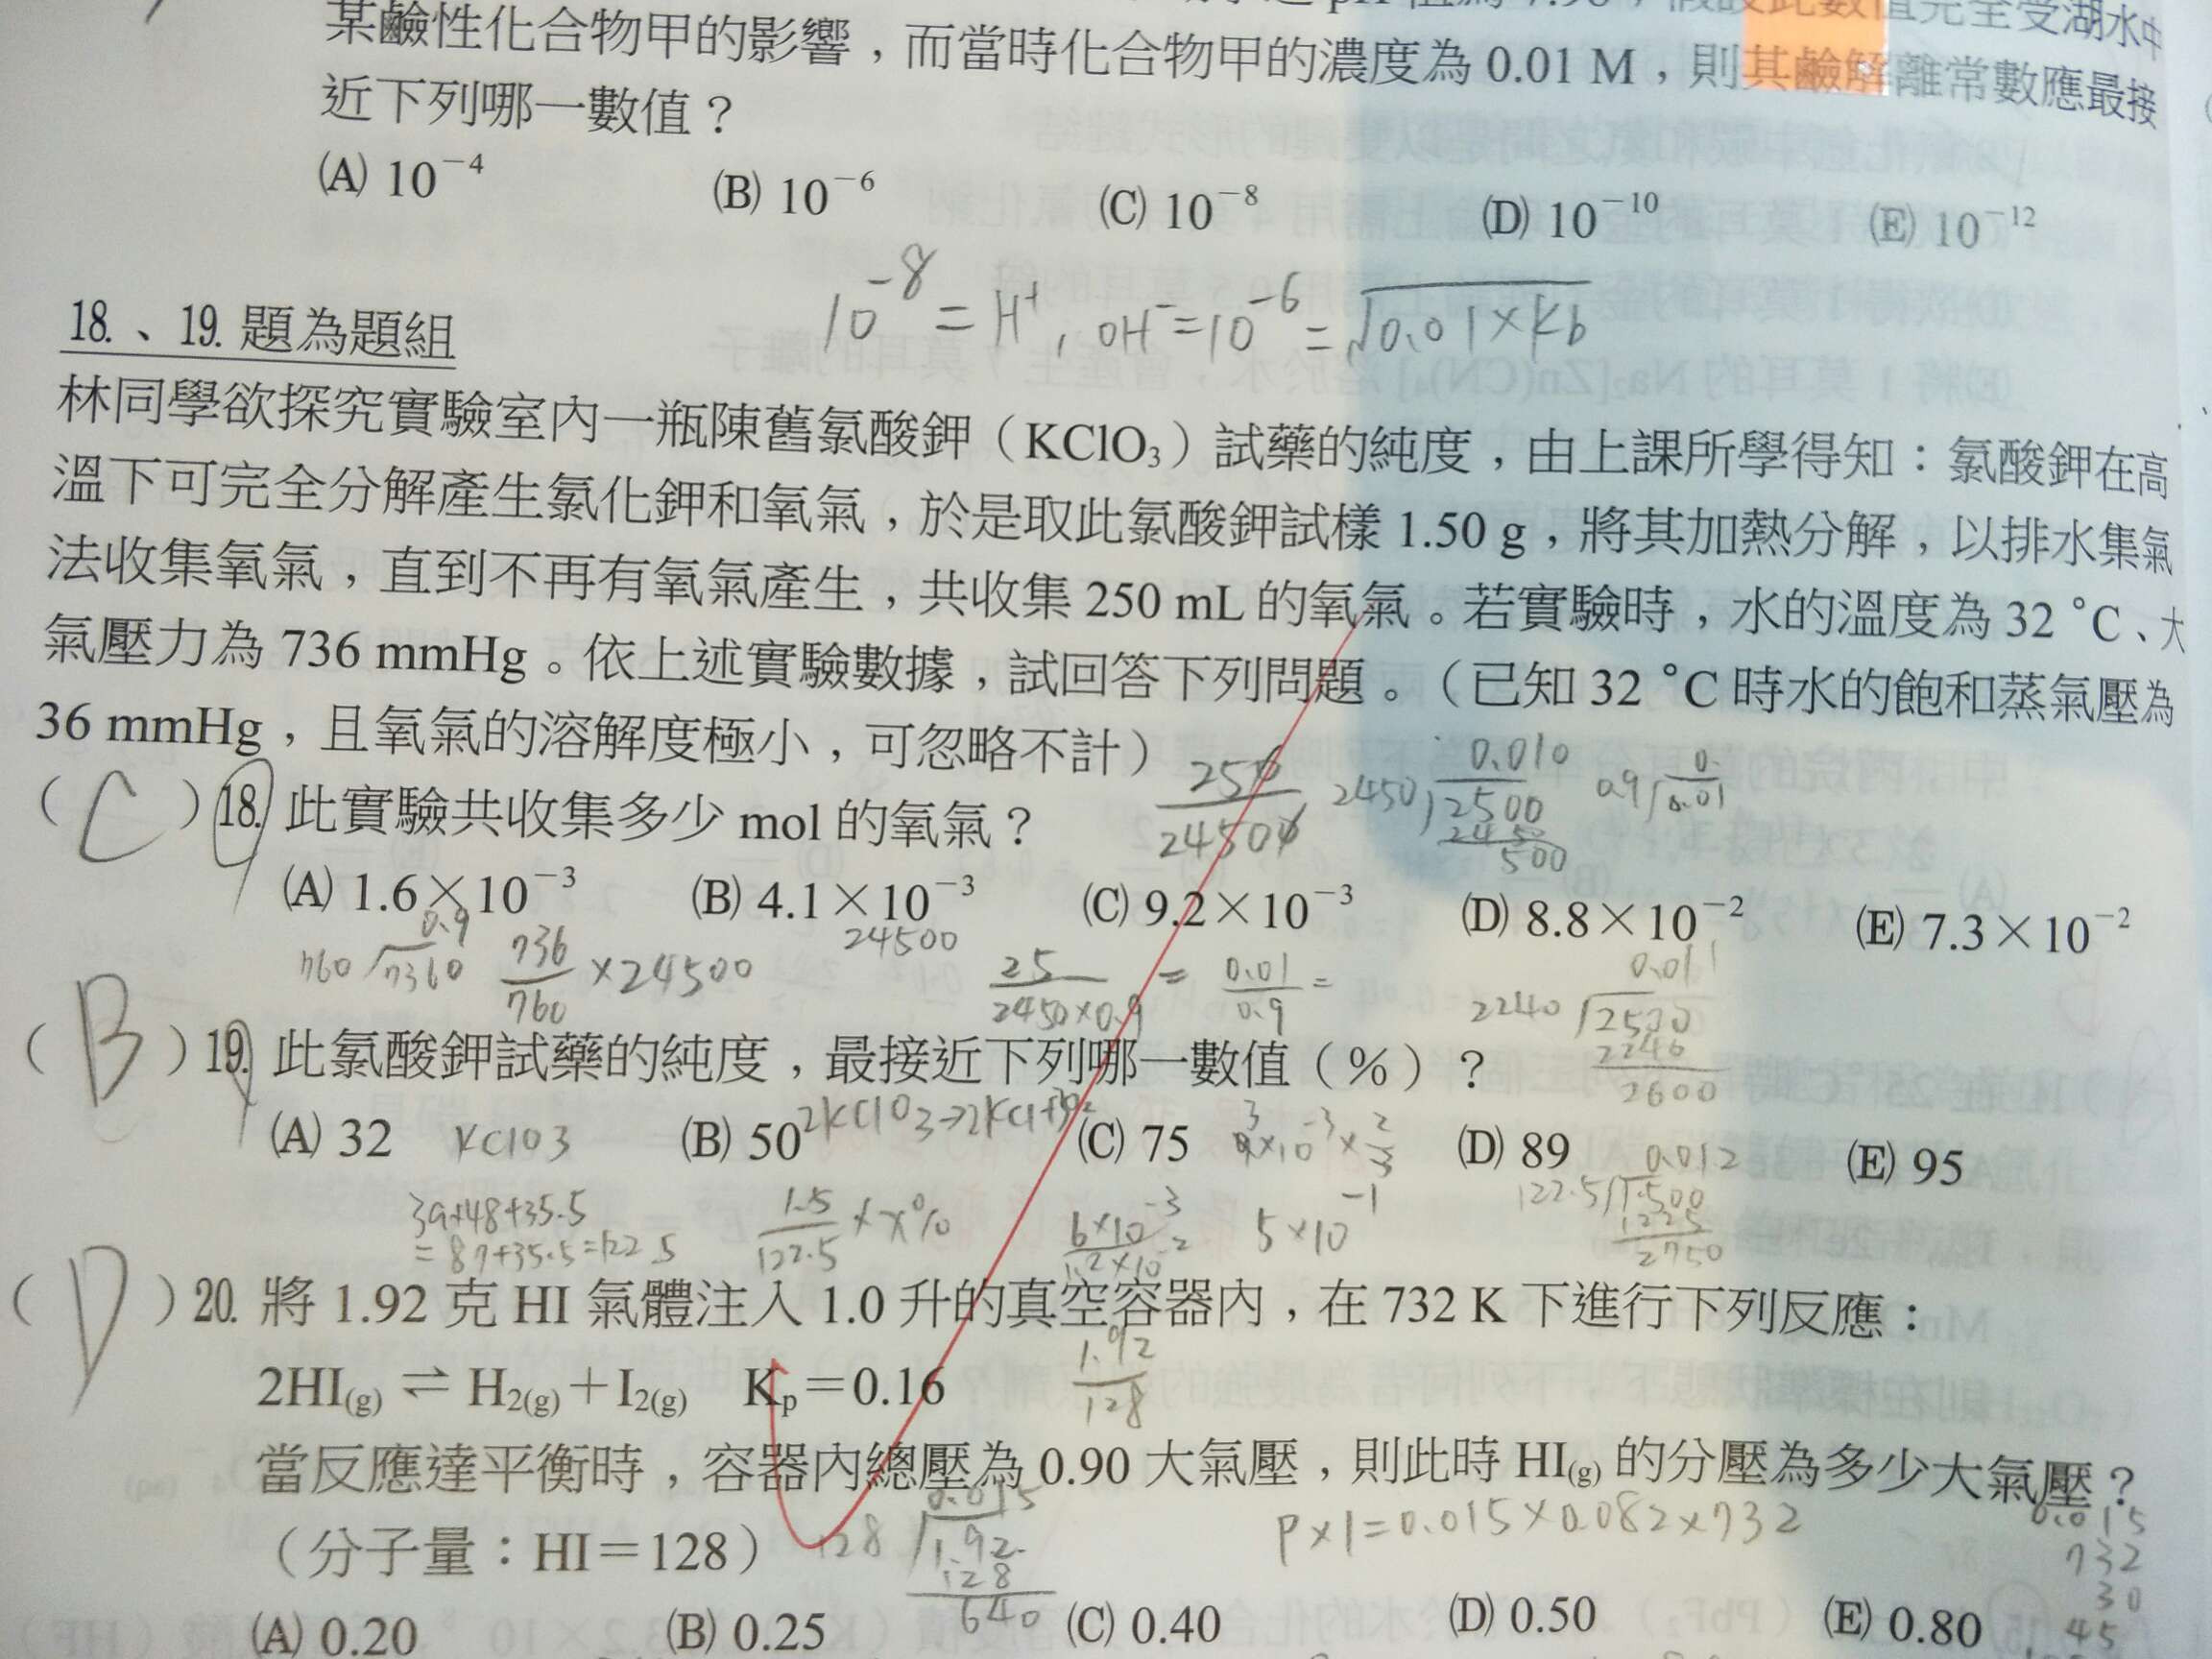 pH 值為 7.98，假設此數值完全受湖水中
某鹼性化合物甲的影響，而當時化合物甲的濃度為 0.01 M，則其鹼解離常數應最接
近下列哪一數值？
(A) 10⁻⁴ (B) 10⁻⁶ (C) 10⁻⁸ (D) 10⁻¹⁰ (E) 10⁻¹²
10⁻⁸ = H⁺, OH⁻ = 10⁻⁶ = √0.01×Kb
18.、19. 題為題組
林同學欲探究實驗室內一瓶陳舊氯酸鉀（KClO₃）試藥的純度，由上課所學得知：氯酸鉀在高
溫下可完全分解產生氯化鉀和氧氣，於是取此氯酸鉀試樣 1.50 g，將其加熱分解，以排水集氣
法收集氧氣，直到不再有氧氣產生，共收集 250 mL 的氧氣。若實驗時，水的溫度為 32 ℃、大
氣壓力為 736 mmHg。依上述實驗數據，試回答下列問題。（已知 32 ℃ 時水的飽和蒸氣壓為
36 mmHg，且氧氣的溶解度極小，可忽略不計）
250/24500 2450 2500 0.010 2450 500 0.9 0.01 0.
（C）18. 此實驗共收集多少 mol 的氧氣？
(A) 1.6×10⁻³ (B) 4.1×10⁻³ (C) 9.2×10⁻³ (D) 8.8×10⁻² (E) 7.3×10⁻²
24500
760 7360 0.9 736/760 ×24500 25/2450×0.9 = 0.01/0.9 = 2240 2500 0.011 2240 2600
（B）19. 此氯酸鉀試藥的純度，最接近下列哪一數值（%）？
(A) 32 (B) 50 (C) 75 (D) 89 (E) 95
KClO3 2KClO3→2KCl+3O2 9×10⁻³×2/3 3
39+48+35.5
=87+35.5=122.5
1.5/122.5 × x% 6×10⁻³/1.2×10⁻² 5×10⁻¹ 122.5 1.500 0.012 1225 2750
（D）20. 將 1.92 克 HI 氣體注入 1.0 升的真空容器內，在 732 K 下進行下列反應：
2HI(g) ⇌ H₂(g)＋I₂(g) Kp＝0.16
1.92/128
當反應達平衡時，容器內總壓為 0.90 大氣壓，則此時 HI(g) 的分壓為多少大氣壓？
（分子量：HI＝128）
128 1.92 0.015 128 640
P×1=0.015×0.082×732
0.015
732
30
45
(A) 0.20 (B) 0.25 (C) 0.40 (D) 0.50 (E) 0.80